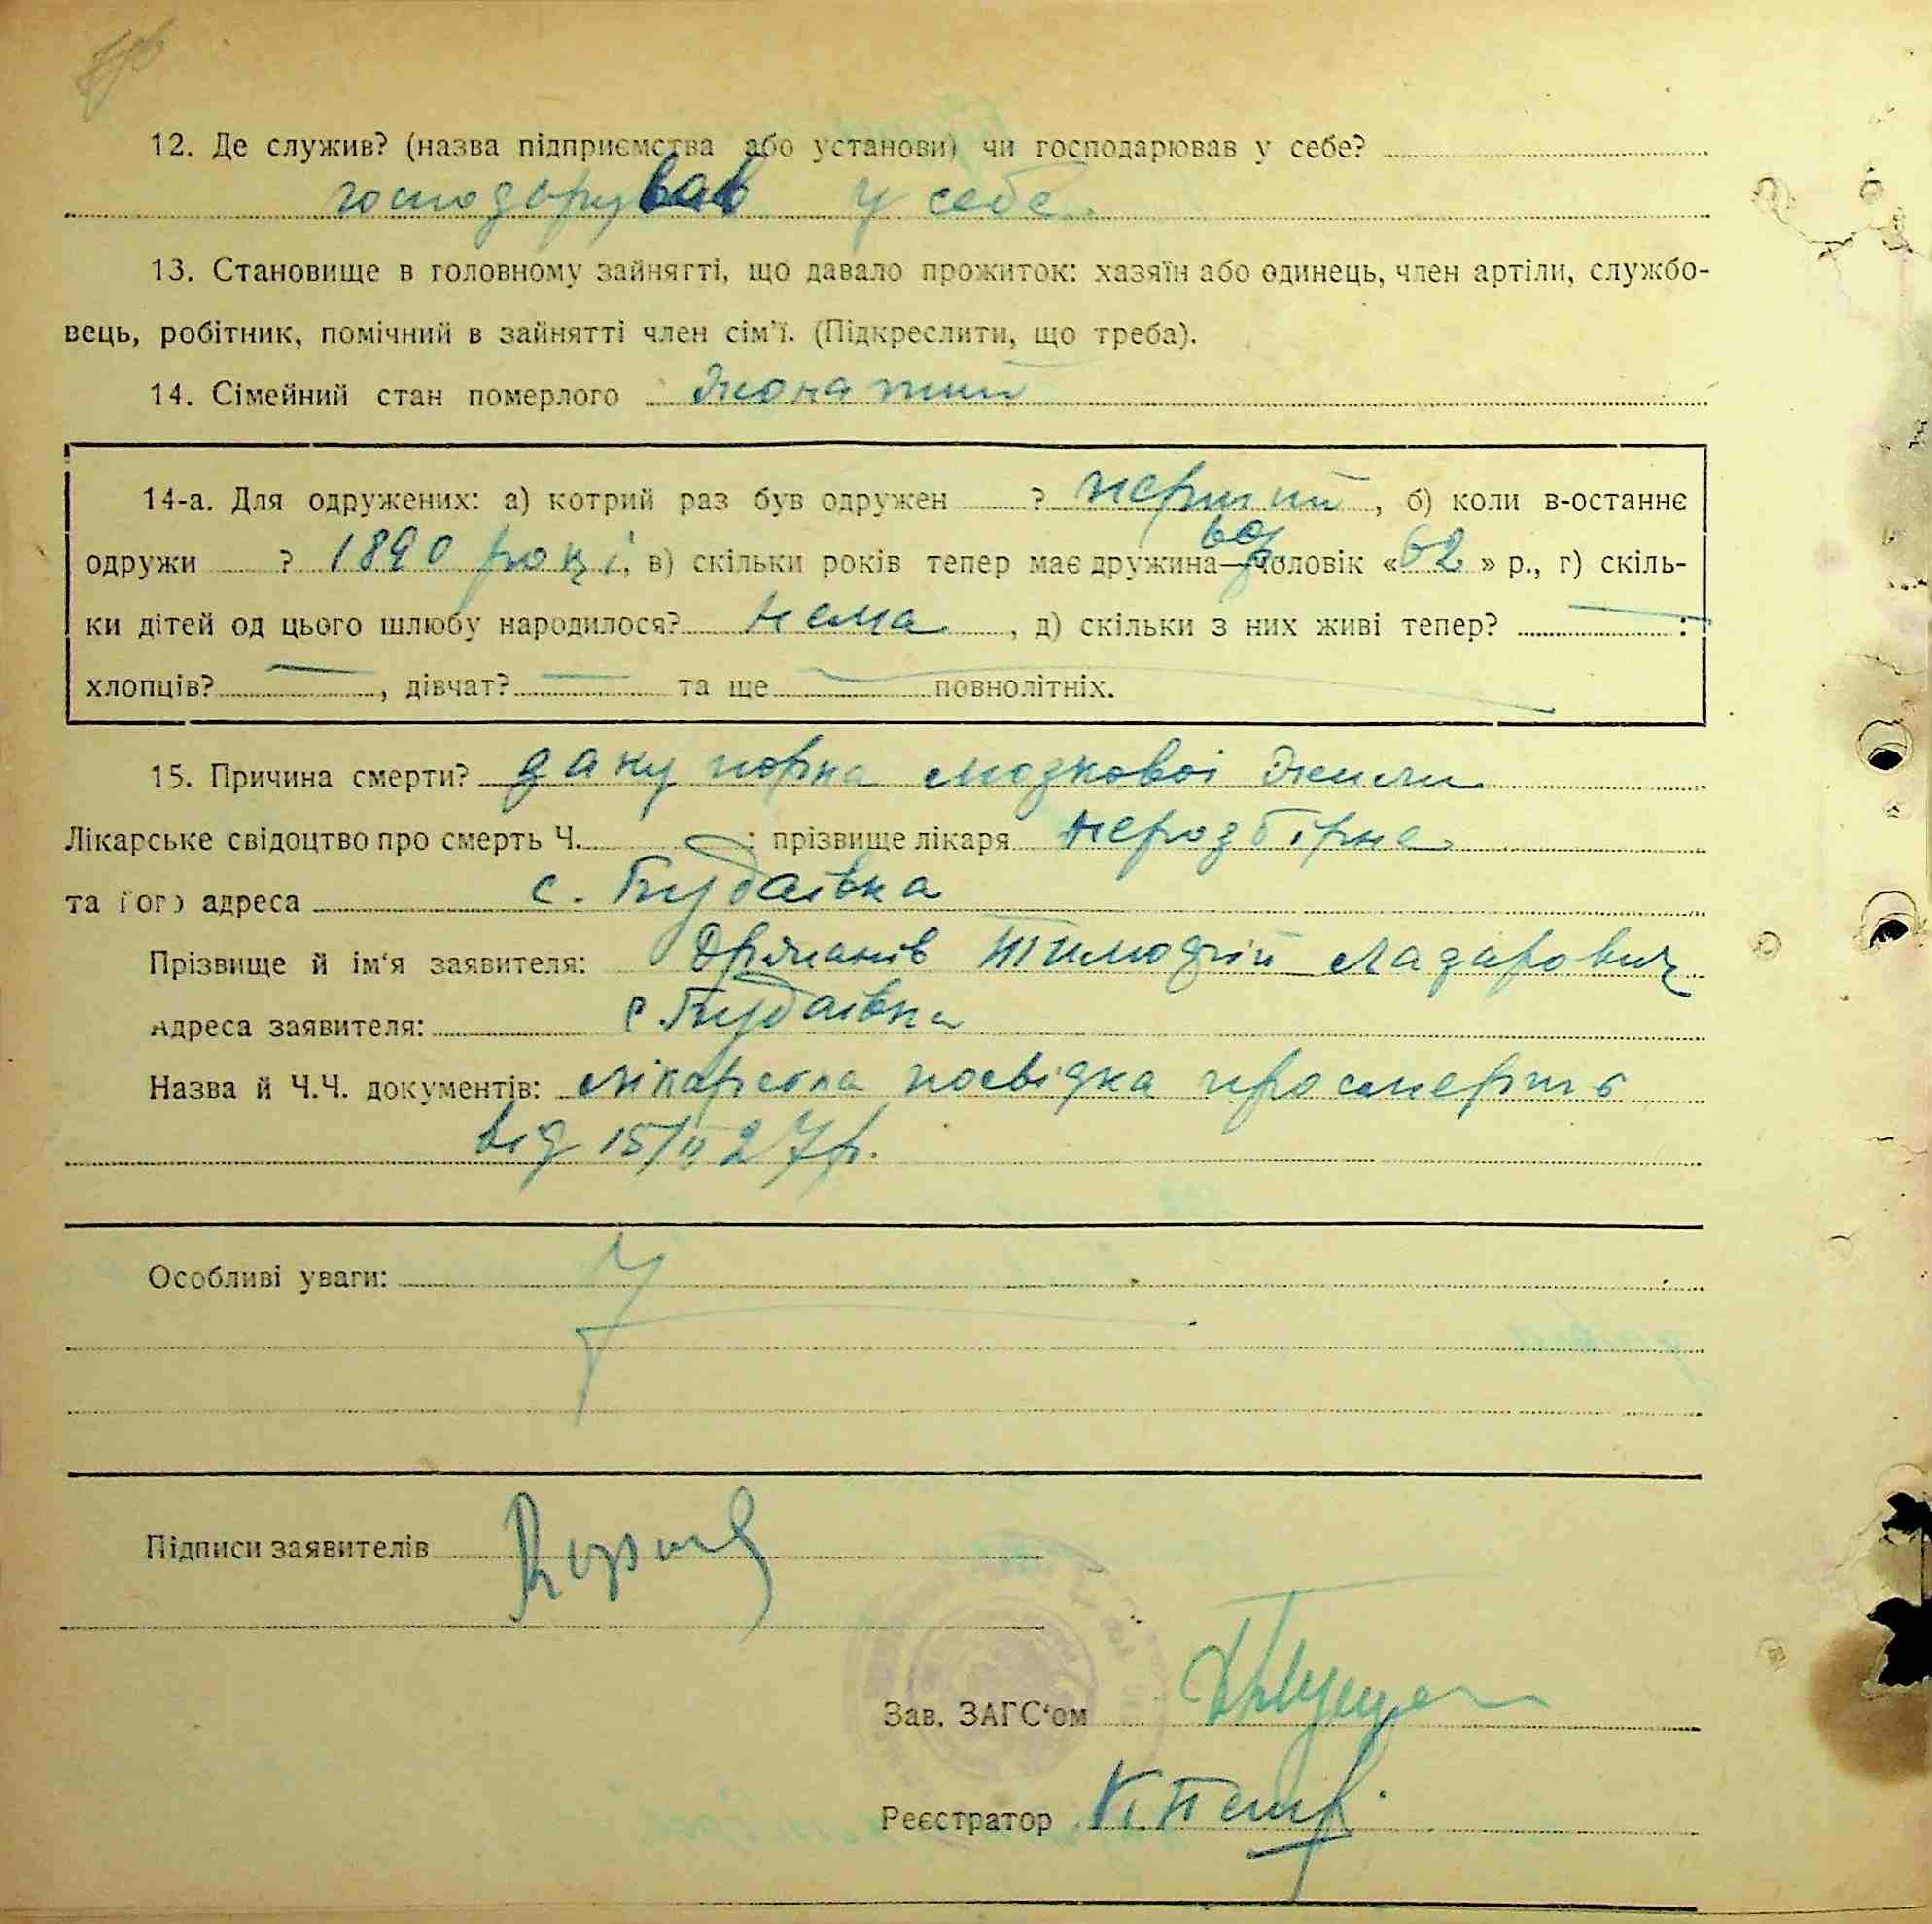 12. Де служив? (назва підприємства або установи) чи господарював у себе?
господарував у себе.
13. Становище в головному зайнятті, що давало прожиток: хазяїн або одинець, член артіли, службо-
вець, робітник, помічний в зайнятті член сім'ї. (Підкреслити, що треба).
14. Сімейний стан померлого жонатий
14-а. Для одружених: а) котрий раз був одружен ? перший, б) коли в-останнє
одружи ? 1890 році, в) скільки років тепер має дружина—чоловік «62» р., г) скіль-
ки дітей од цього шлюбу народилося? нема, д) скільки з них живі тепер? — :
хлопців? —, дівчат? — та ще — повнолітніх.
15. Причина смерти? закупорка мозкової жили
Лікарське свідоцтво про смерть Ч. — : прізвище лікаря нерозбірне
та його адреса с. Будаївка
Прізвище й ім'я заявителя: Тимофій Лазарович
Адреса заявителя: с. Будаївка
Назва й Ч.Ч. документів: лікарська посвідка про смерть
від 15/II 27 р.
Особливі уваги:
Підписи заявителів
Зав. ЗАГС'ом
Реєстратор